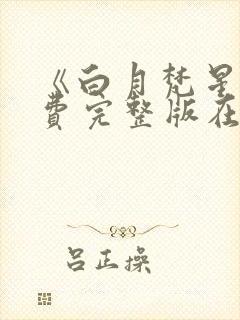 《白月梵星
费完整版在
吕正操